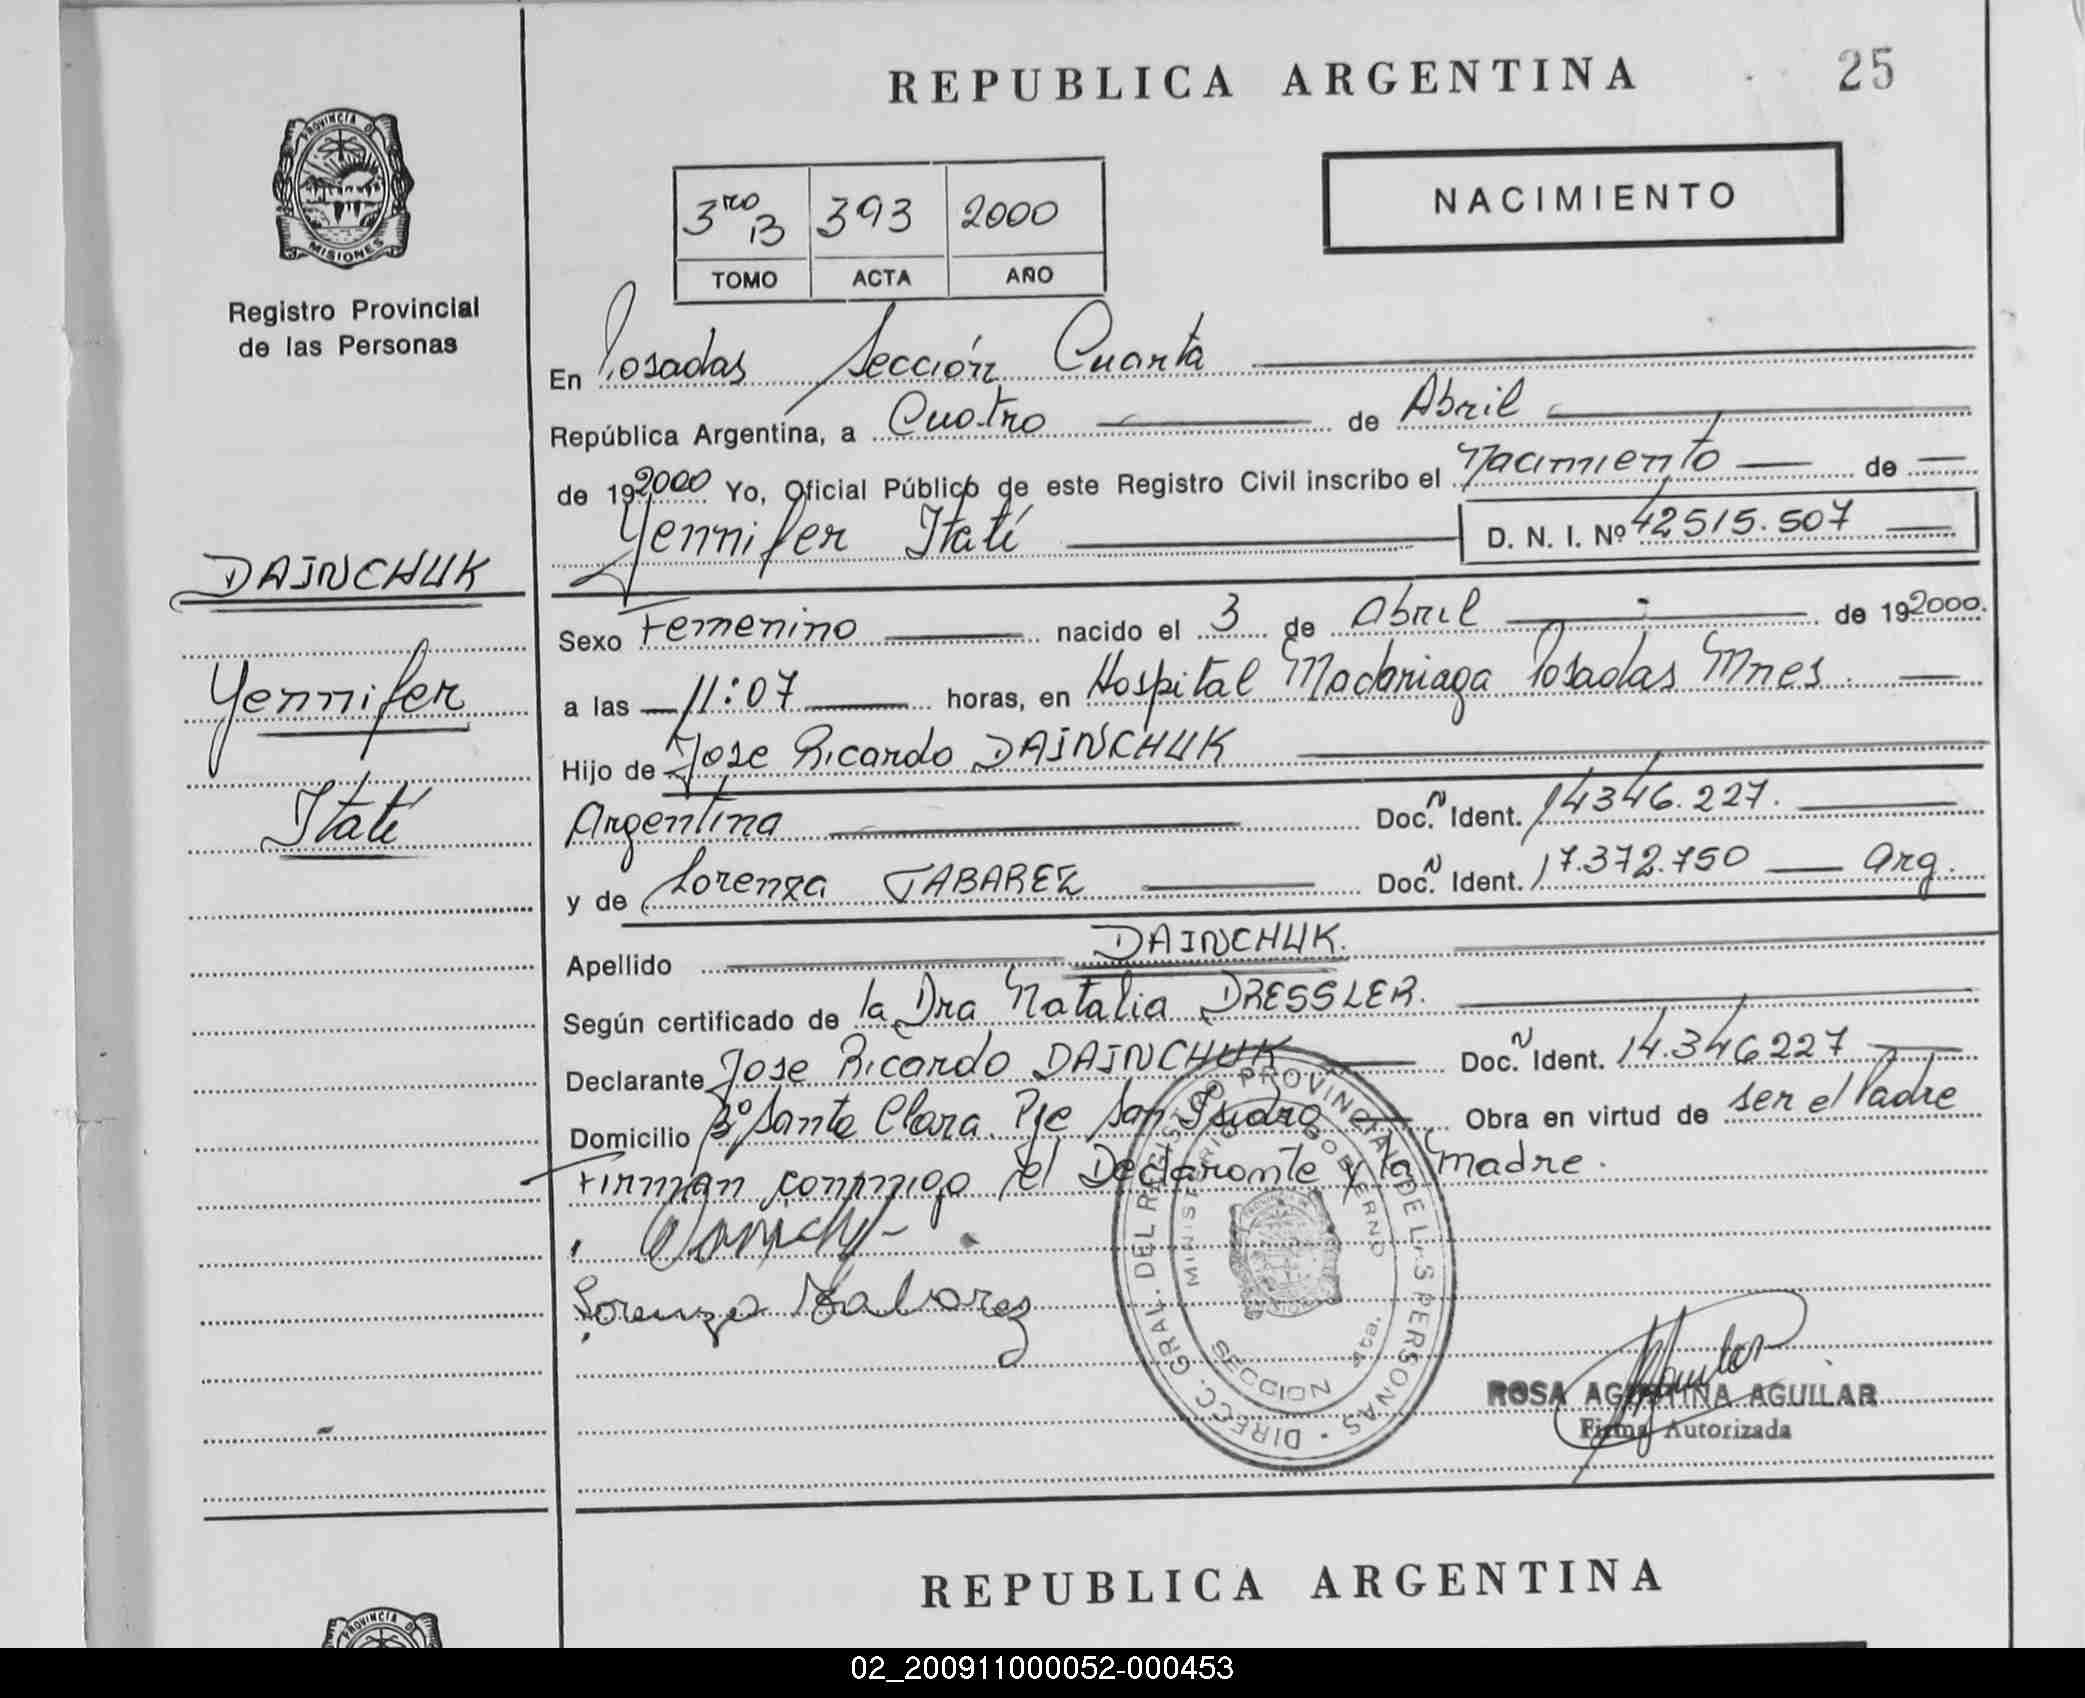 REPUBLICA ARGENTINA
25
PROVINCIA DE
MISIONES
Registro Provincial
de las Personas
3ro B 393 2000
TOMO ACTA AÑO
NACIMIENTO
En Posadas Sección Cuarta
República Argentina, a Cuatro de Abril
de 192000 Yo, Oficial Público de este Registro Civil inscribo el Nacimiento de
Yennifer Itatí D. N. I. Nº 42515.507
DAINCHUK
Yennifer
Itatí
Sexo Femenino nacido el 3 de Abril de 192000.
a las 11:07 horas, en Hospital Madariaga Posadas Mnes.
Hijo de Jose Ricardo DAINCHUK
Argentina Doc. N Ident. 14346.227.
y de Lorenza TABAREZ Doc. N Ident. 17.372.750 Arg.
Apellido DAINCHUK.
Según certificado de la Dra Natalia DRESSLER.
Declarante Jose Ricardo DAINCHUK Doc. N Ident. 14.346227
Domicilio Bº Santa Clara. Pje San Isidro Obra en virtud de ser el Padre
Firman conmigo el Declarante y la Madre.
Lorenza Tabarez
DIRECC. GRAL. DEL REGISTRO PROVINCIAL DE LAS PERSONAS
MINISTERIO GOBIERNO
SECCION 4ta.
ROSA AGUSTINA AGUILAR
Firma Autorizada
REPUBLICA ARGENTINA
PROVINCIA D
02_200911000052-000453